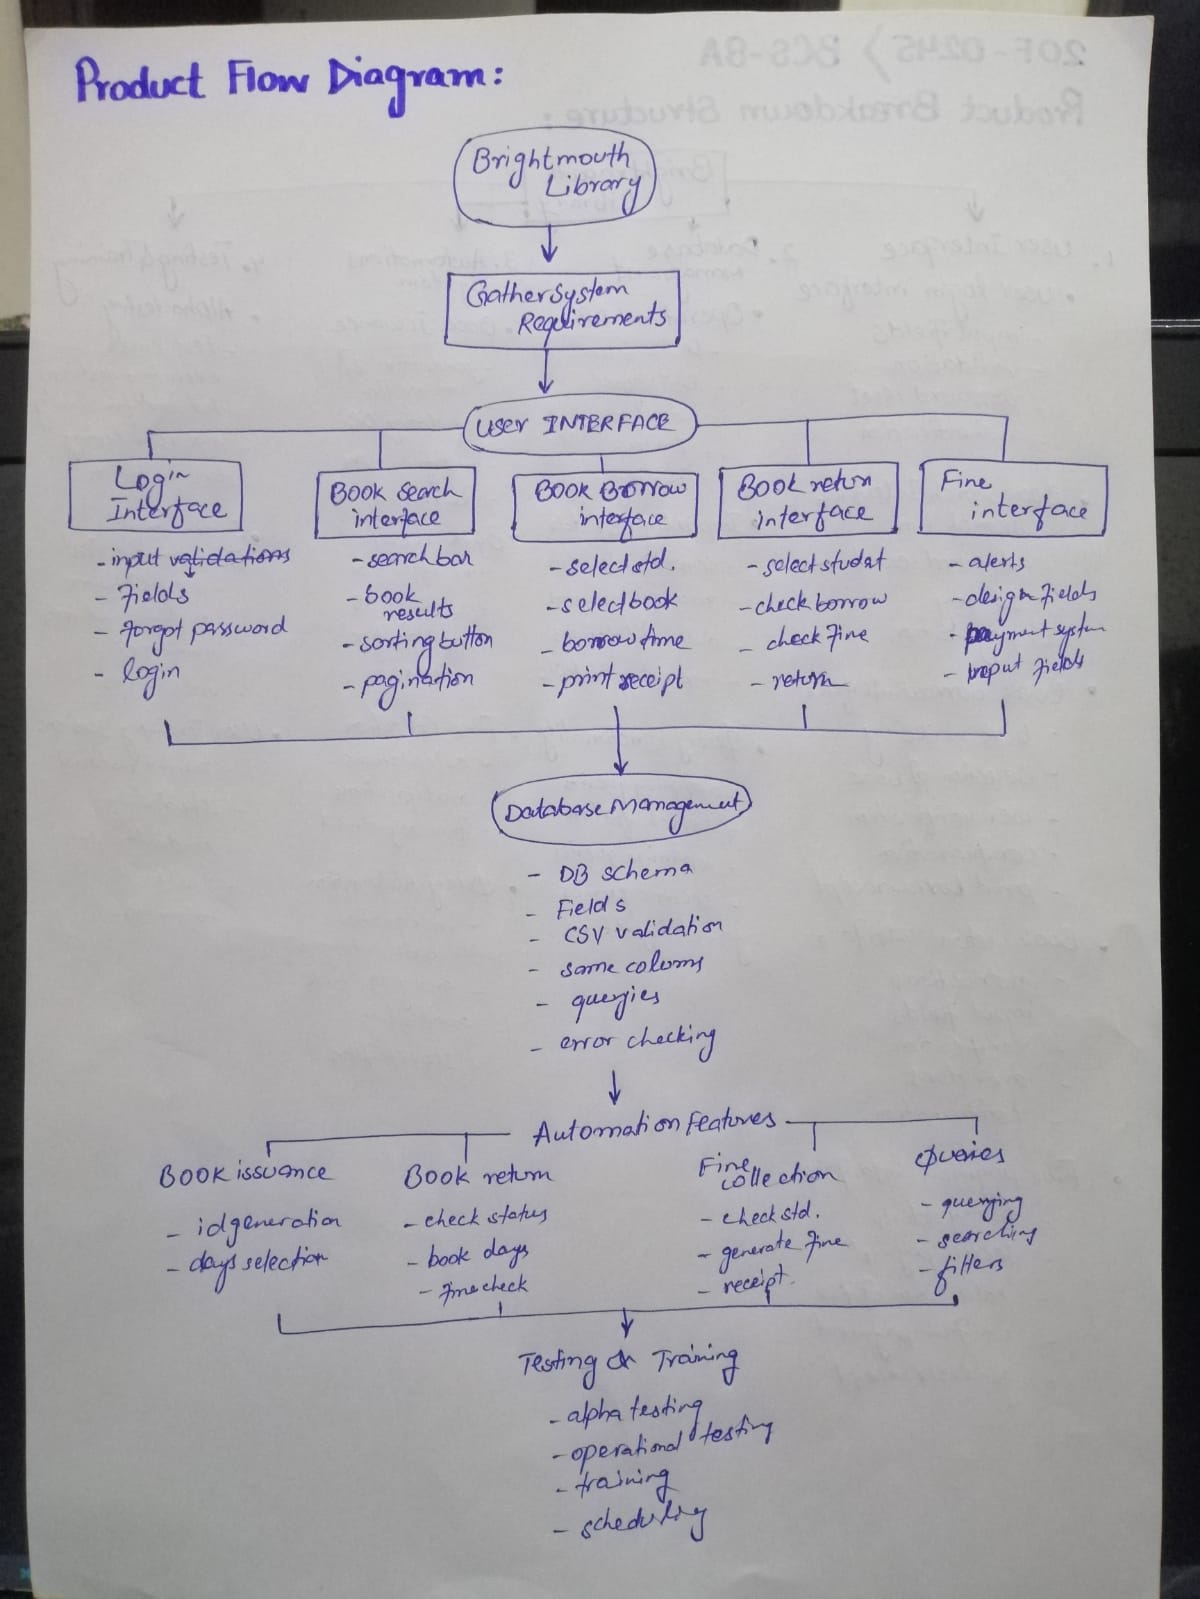 Product Flow Diagram:
Brightmouth
Library
Gather System
Requirements
User INTERFACE
Login
Interface
- input validations
- Fields
- forgot password
- login
Book search
interface
- search bar
- book
results
- sorting button
- pagination
Book Borrow
interface
- select std.
- select book
- borrow time
- print receipt
Book return
interface
- select studat
- check borrow
- check fine
- return
Fine
interface
- alerts
- design fields
- payment system
- input fields
Database Management
- DB schema
- Fields
- CSV validation
- same colums
- queryies
- error checking
Automation Features
Book issuance
- id generation
- days selection
Book return
- check status
- book days
- fine check
Fine
collection
- check std.
- generate fine
- receipt.
Queries
- querying
- searching
- filters
Testing & Training
- alpha testing
- operational testing
- training
- scheduling